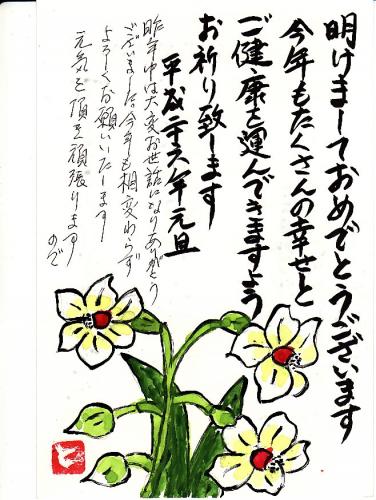 明けましておめでとうございます
今年もたくさんの幸せと
ご健康を運んできますよう
お祈り致します
平成二十六年元旦
昨年中は大変お世話になりありがとう
ございました。今年も相変わらず
よろしくお願いいたします
元気を頂き頑張ります